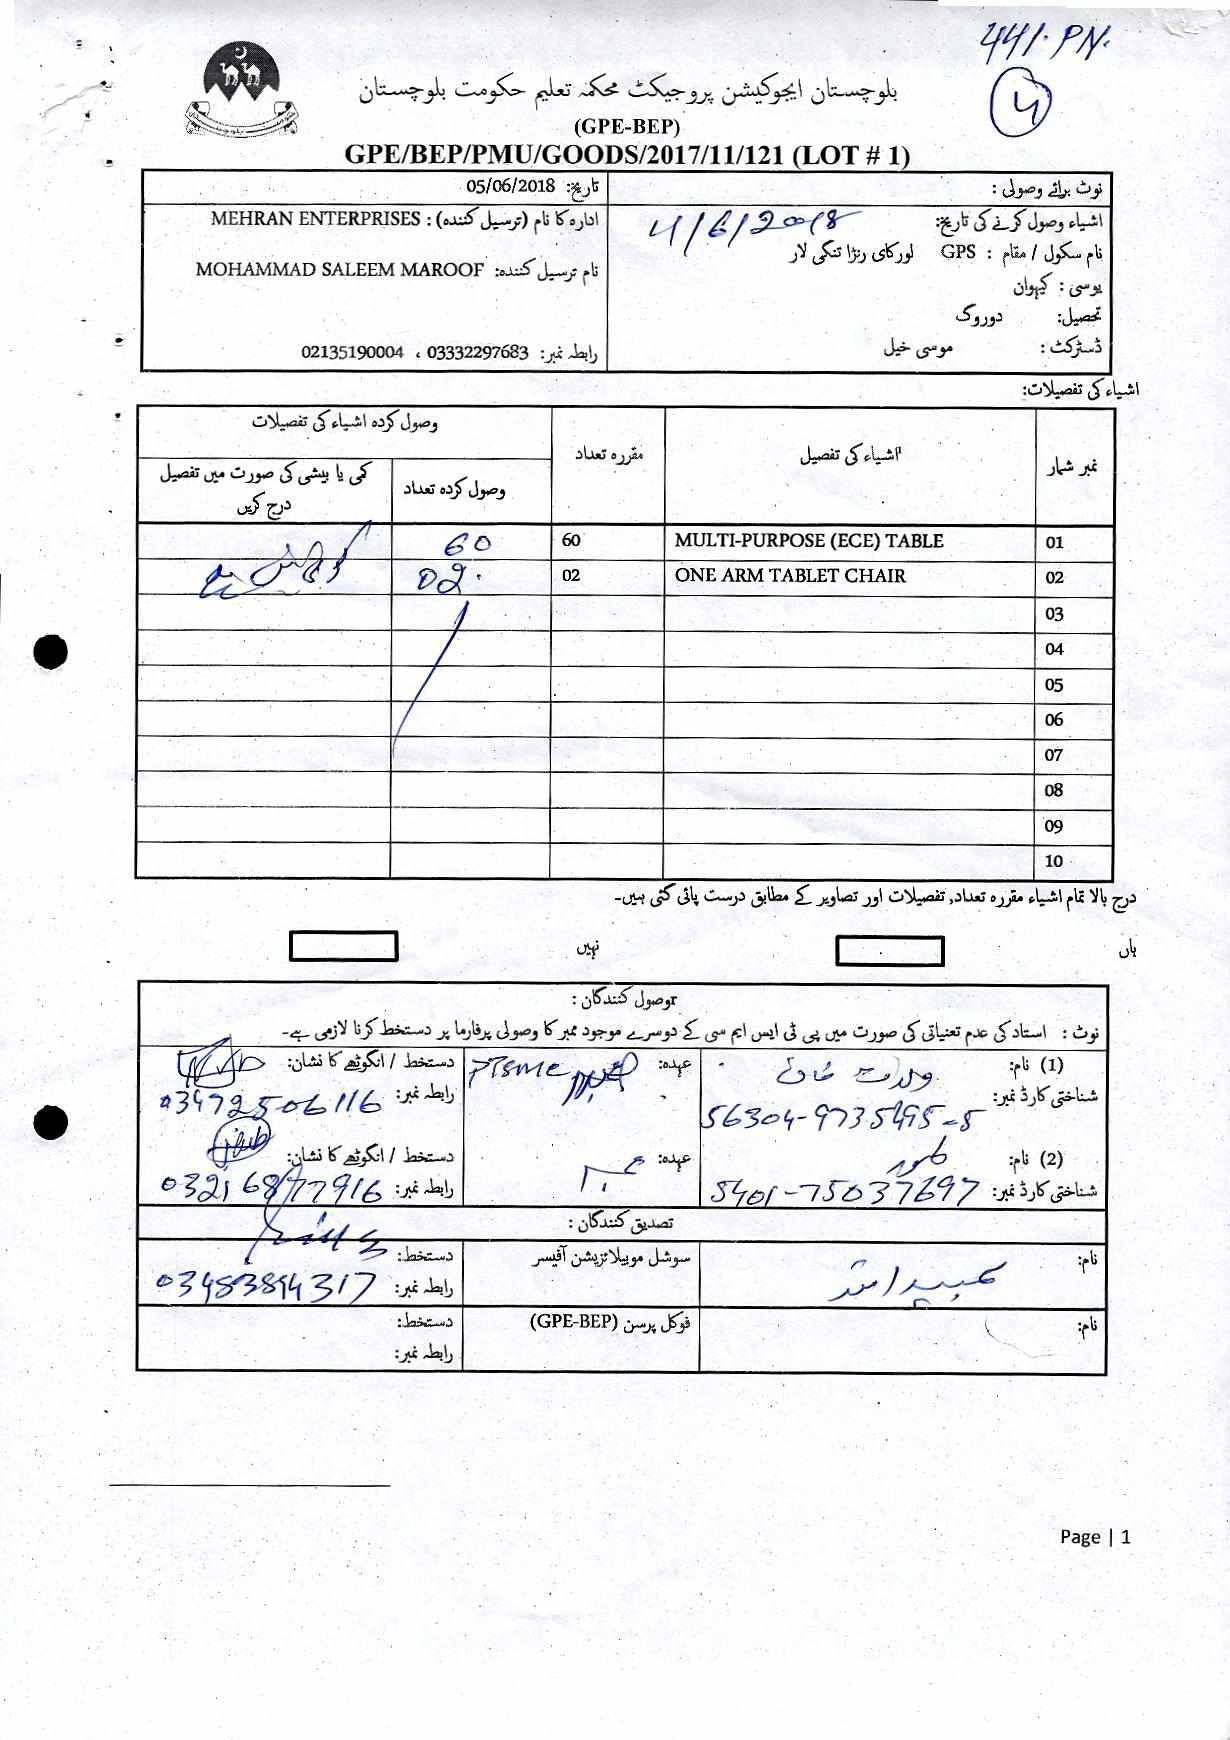 441. PN.
4
بلوچستان ایجوکیشن پروجیکٹ محکمہ تعلیم حکومت بلوچستان
(GPE-BEP)
GPE/BEP/PMU/GOODS/2017/11/121 (LOT # 1)
نوٹ برائے وصولی :
تاریخ: 05/06/2018
اشیاء وصول کرنے کی تاریخ: 4/6/2018
نام سکول / مقام : GPS لورکای رنڑا تنگی لار
یوسی : کیہوان
تحصیل: دوروگ
ڈسٹرکٹ : موسی خیل
ادارہ کا نام (ترسیل کنندہ) : MEHRAN ENTERPRISES
نام ترسیل کنندہ: MOHAMMAD SALEEM MAROOF
رابطہ نمبر: 03332297683 ، 02135190004
اشیاء کی تفصیلات:
نمبر شمار
اشیاء کی تفصیل
مقررہ تعداد
وصول کردہ اشیاء کی تفصیلات
وصول کردہ تعداد
کمی یا بیشی کی صورت میں تفصیل
درج کریں
01 MULTI-PURPOSE (ECE) TABLE 60 60
02 ONE ARM TABLET CHAIR 02 02
03
04
05
06
07
08
09
10
درج بالا تمام اشیاء مقررہ تعداد, تفصیلات اور تصاویر کے مطابق درست پائی گئی ہیں۔
ہاں
نہیں
وصول کنندگان :
نوٹ : استاد کی عدم تعنیاتی کی صورت میں پی ٹی ایس ایم سی کے دوسرے موجود ممبر کا وصولی پرفارما پر دستخط کرنا لازمی ہے۔
(1) نام: ولادت خان
عہدہ: PTSMC
دستخط / انگوٹھے کا نشان:
شناختی کارڈ نمبر: 56304-9735495-5
رابطہ نمبر: 03472506116
(2) نام:
عہدہ:
دستخط / انگوٹھے کا نشان:
شناختی کارڈ نمبر: 5401-75037697
رابطہ نمبر: 03216877916
تصدیق کنندگان :
نام:
سوشل موبیلائزیشن آفیسر
دستخط:
رابطہ نمبر: 03483894317
نام:
فوکل پرسن (GPE-BEP)
دستخط:
رابطہ نمبر:
Page | 1